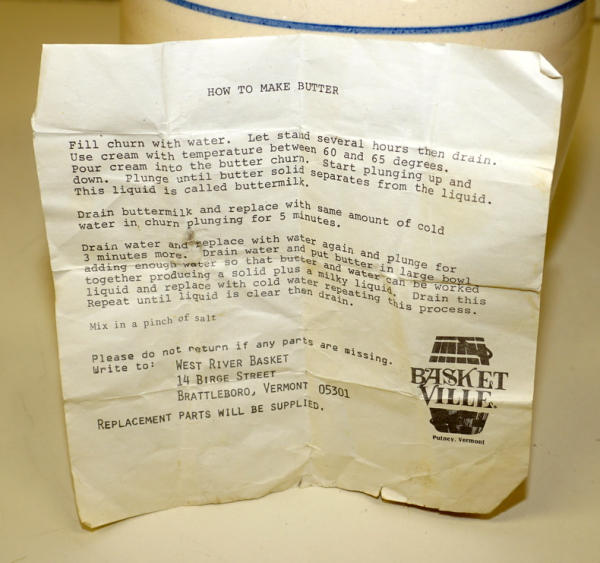 HOW TO MAKE BUTTER
Fill churn with water. Let stand several hours then drain.
Use cream with temperature between 60 and 65 degrees.
Pour cream into the butter churn. Start plunging up and
down. Plunge until butter solid separates from the liquid.
This liquid is called buttermilk.
Drain buttermilk and replace with same amount of cold
water in churn plunging for 5 minutes.
Drain water and replace with water again and plunge for
3 minutes more. Drain water and put butter in large bowl
adding enough water so that butter and water can be worked
together producing a solid plus a milky liquid. Drain this
liquid and replace with cold water repeating this process.
Repeat until liquid is clear then drain.
Mix in a pinch of salt
Please do not return if any parts are missing.
Write to: WEST RIVER BASKET
14 BIRGE STREET
BRATTLEBORO, VERMONT 05301
REPLACEMENT PARTS WILL BE SUPPLIED.
BASKET
VILLE
Putney, Vermont